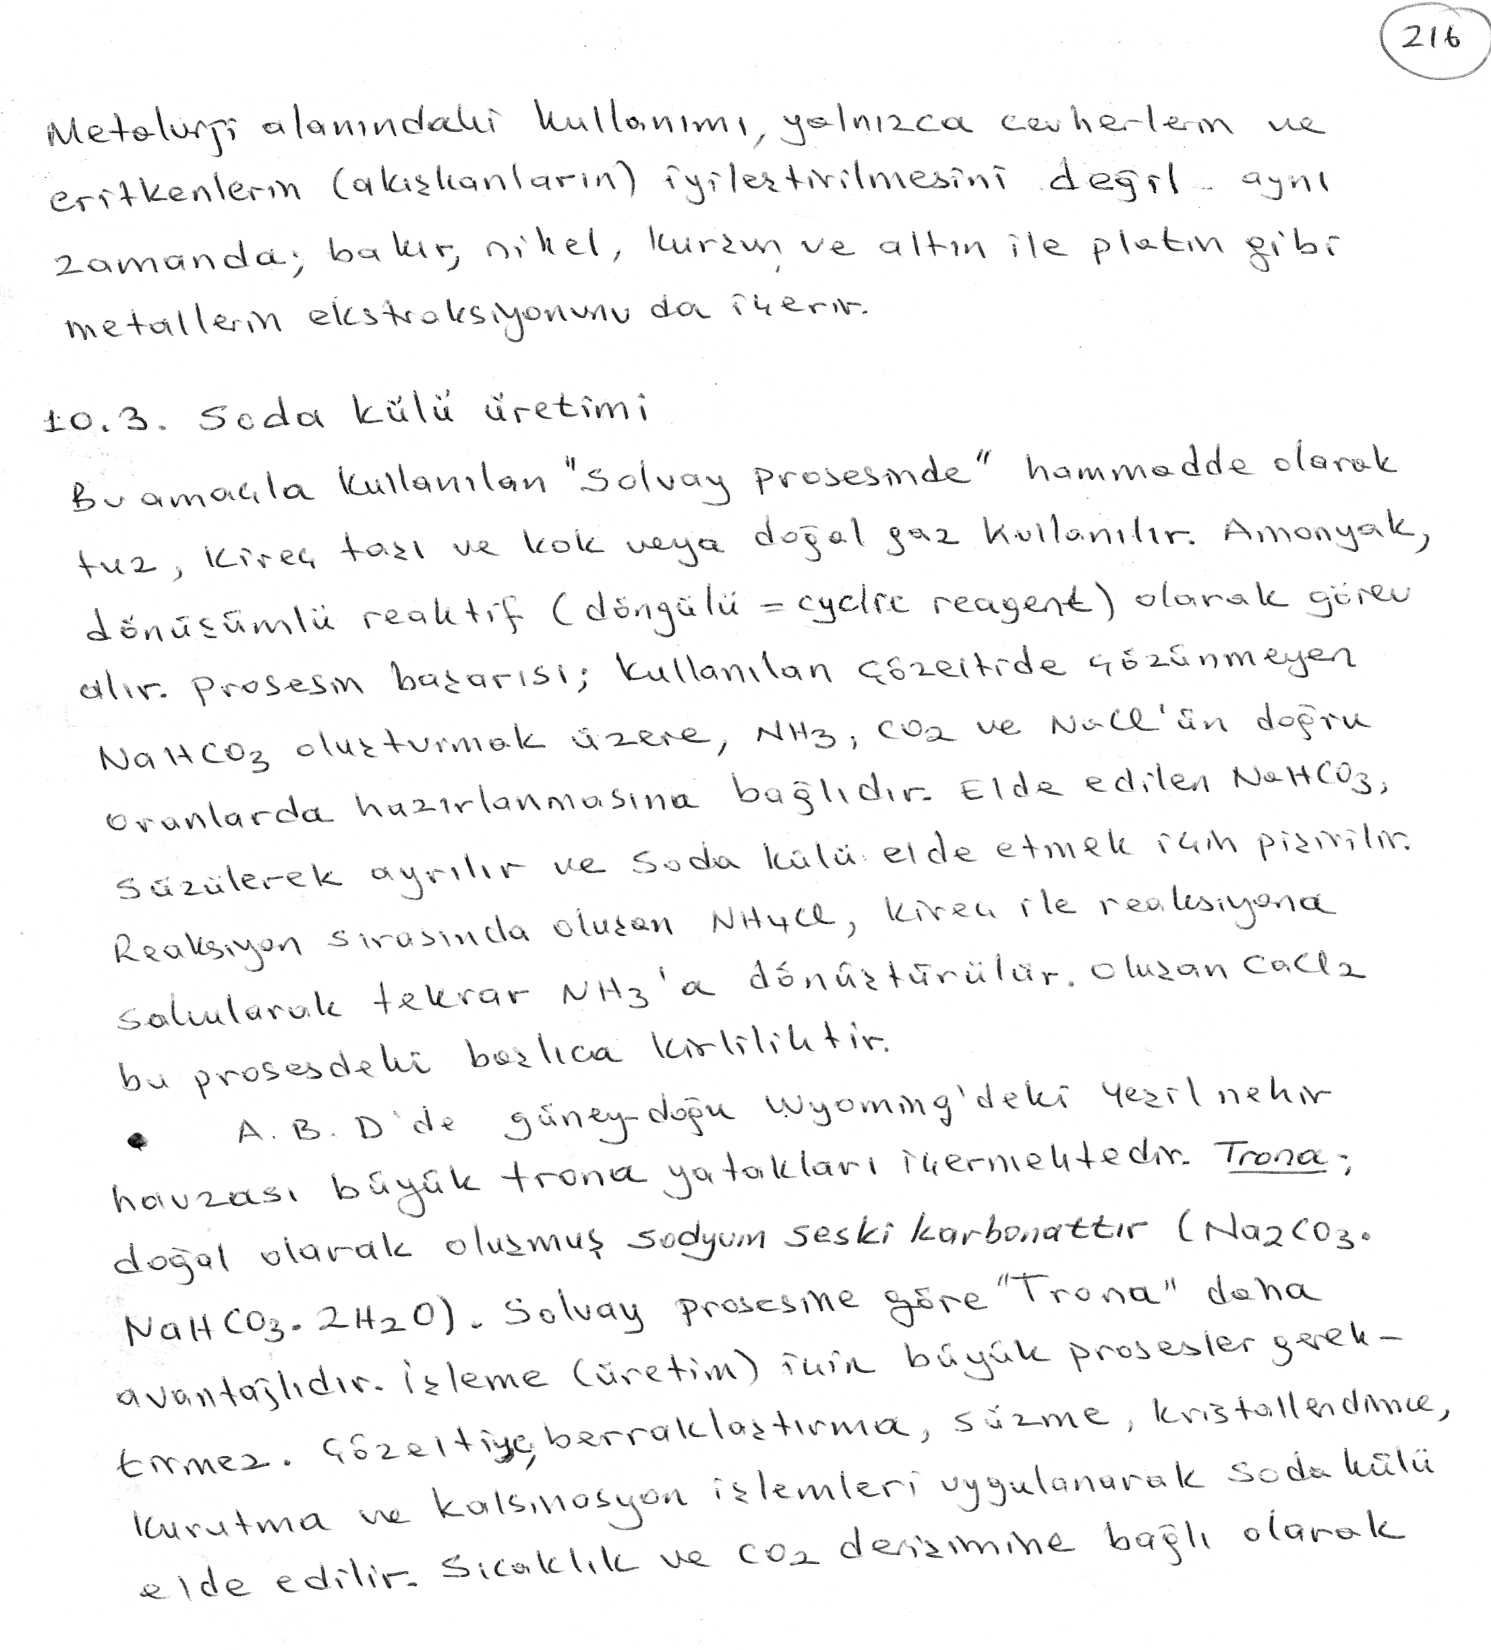 216
Metalurji alanındaki kullanımı, yalnızca cevherlerin ve
eritkenlerin (akışkanların) iyileştirilmesini değil aynı
zamanda; bakır, nikel, kurşun ve altın ile platin gibi
metallerin ekstraksiyonunu da içerir.
10.3. Soda külü üretimi
Bu amaçla kullanılan "Solvay prosesinde" hammadde olarak
tuz, kireç taşı ve kok veya doğal gaz kullanılır. Amonyak,
dönüşümlü reaktif (döngülü = cyclic reagent) olarak görev
alır. Prosesin başarısı; kullanılan çözeltide çözünmeyen
NaHCO3 oluşturmak üzere, NH3, CO2 ve NaCl'ün doğru
oranlarda hazırlanmasına bağlıdır. Elde edilen NaHCO3,
süzülerek ayrılır ve soda külü elde etmek için pişirilir.
Reaksiyon sırasında oluşan NH4Cl, kireç ile reaksiyona
sokularak tekrar NH3'a dönüştürülür. Oluşan CaCl2
bu prosesdeki başlıca kirliliktir.
• A.B.D'de güney-doğu Wyoming'deki Yeşil nehir
havzası büyük trona yatakları içermektedir. Trona;
doğal olarak oluşmuş sodyum seski karbonattır (Na2CO3.
NaHCO3.2H2O). Solvay prosesine göre "Trona" daha
avantajlıdır. İşleme (üretim) için büyük prosesler gerek-
tirmez. Çözeltiye, berraklaştırma, süzme, kristallendirme,
kurutma ve kalsinasyon işlemleri uygulanarak soda külü
elde edilir. Sıcaklık ve CO2 derişimine bağlı olarak